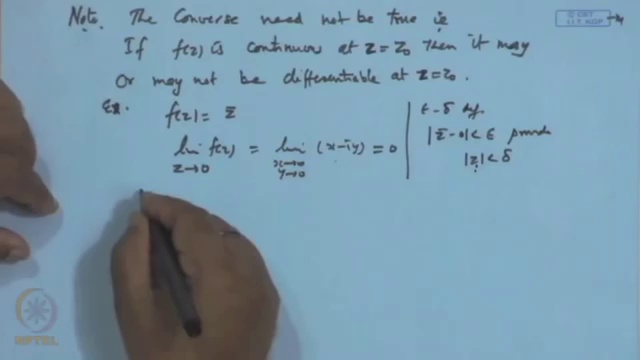 Note. The Converse need not be true ie
© CET
I.I.T. KGP
If f(z) is continuous at z=z₀ then it may
Or may not be differentiable at z=z₀.
Ex. f(z) = z̄
lim f(z) = lim (x-iy) = 0
z→0 x→0
y→0
ϵ-δ def.
|z̄-0|<ϵ provide
|z|<δ
NPTEL